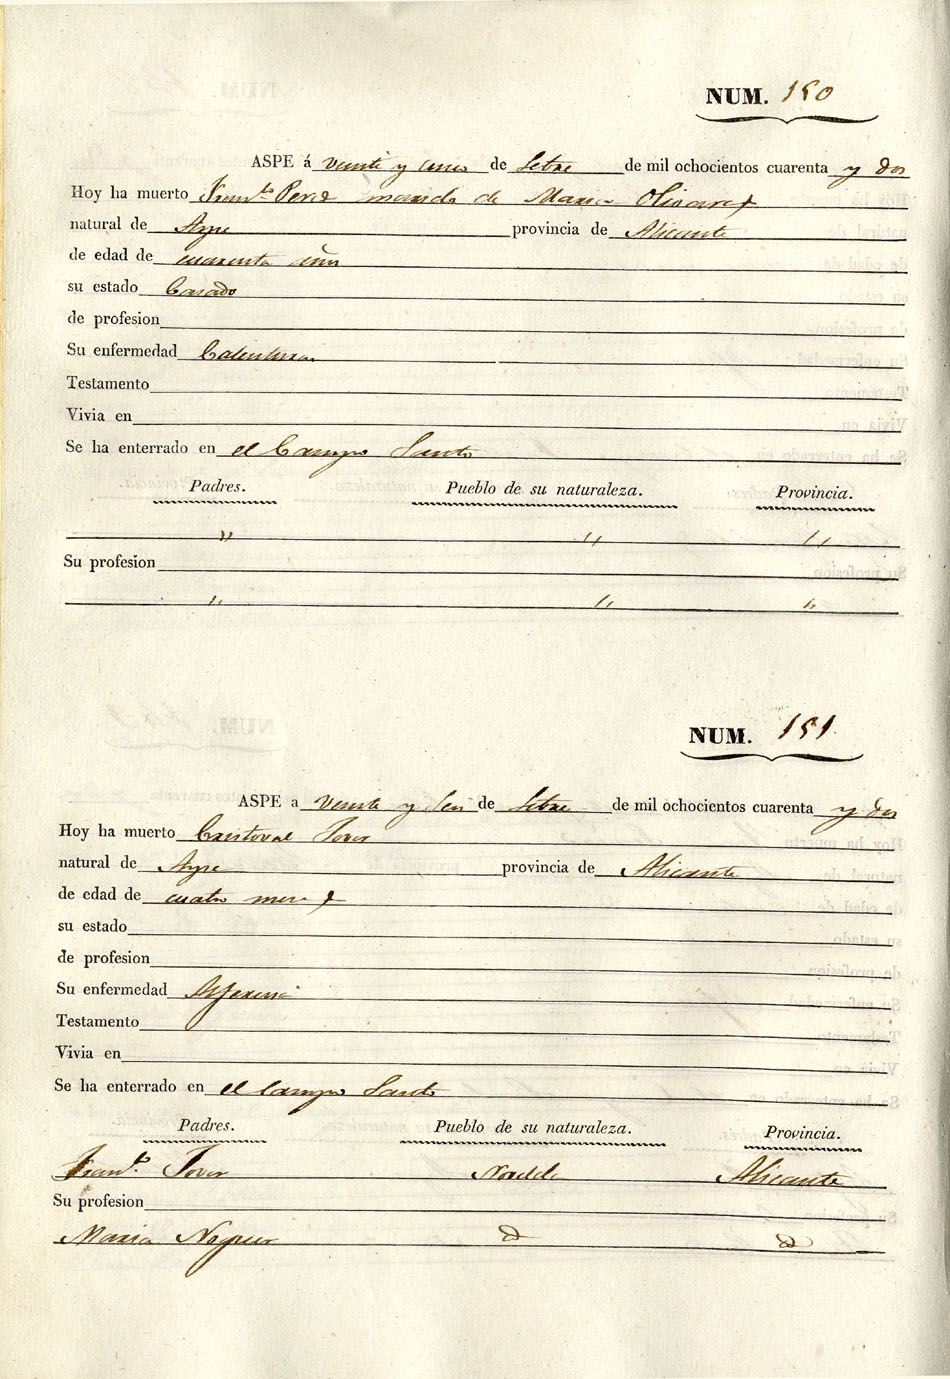 NUM. 150
ASPE á veinte y cinco de Setbre de mil ochocientos cuarenta y dos
Hoy ha muerto Fran.co Perez marido de Maria Olivares
natural de Aspe provincia de Alicante
de edad de cuarenta años
su estado Casado
de profesion
Su enfermedad Calentura
Testamento
Vivia en
Se ha enterrado en el Campo Santo
Padres. Pueblo de su naturaleza. Provincia.
" " "
Su profesion
" " "
NUM. 151.
ASPE a veinte y seis de Setbre de mil ochocientos cuarenta y dos
Hoy ha muerto Cristoval Jover
natural de Aspe provincia de Alicante
de edad de cuatro meses
su estado
de profesion
Su enfermedad Alferesia
Testamento
Vivia en
Se ha enterrado en el Campo Santo
Padres. Pueblo de su naturaleza. Provincia.
Fran.co Jover Novelda Alicante
Su profesion
Maria